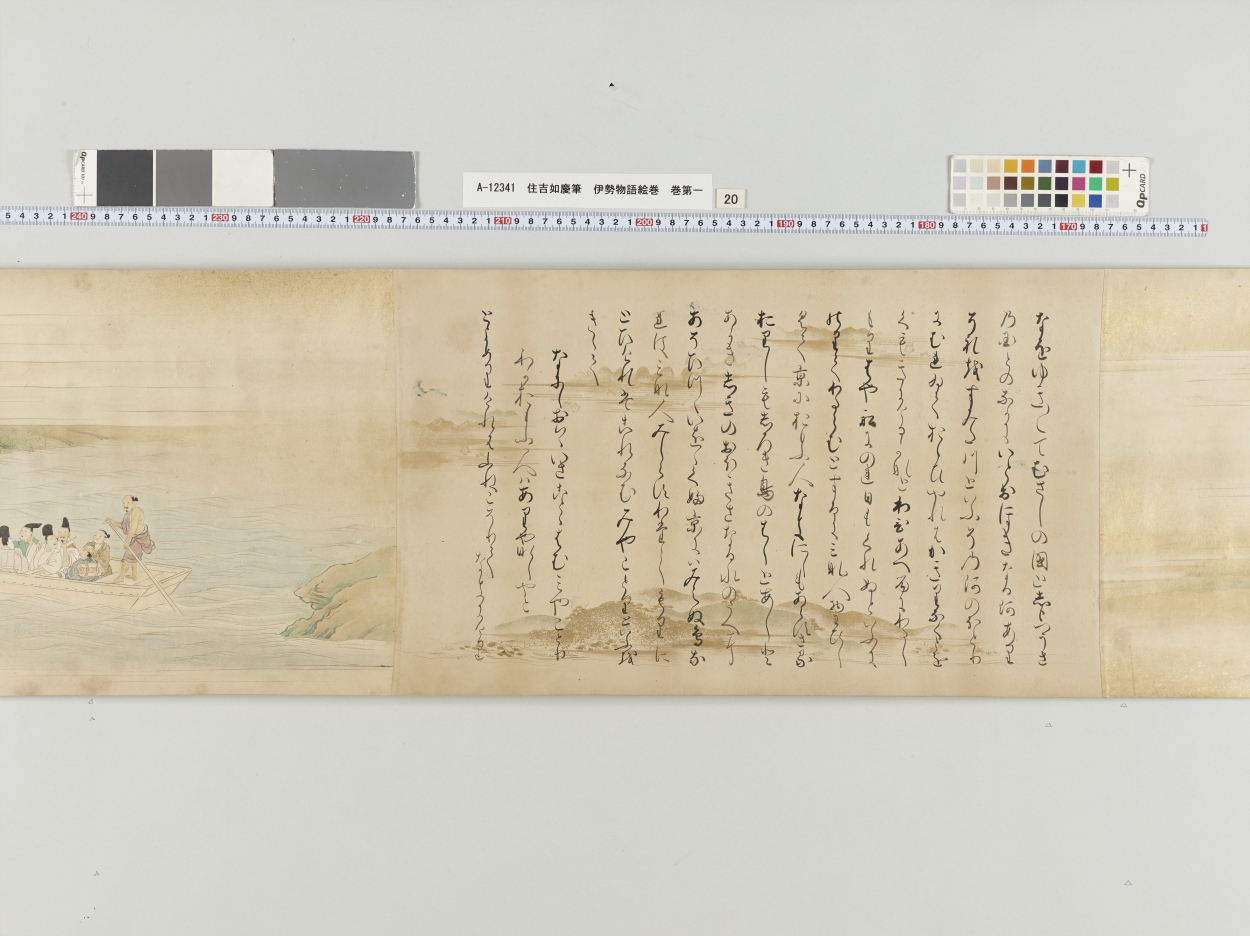 A-12341 住吉如慶筆 伊勢物語絵巻 巻第一
20
QPCARD
QPCARD
240 230 220 210 200 190 180 170
なをゆき／＼てむさしの國としもつふさ
乃国との中にいとおほきなる河あり
それをすみた川といふその河のほとり
にむれゐておもひやれはかきりなくとを
くもきにけるかなとわひあへるにわたし
もりはや舩にのれ日もくれぬといふに
のりてわたらむとするにみな人物わひし
くて京におもふ人なきにしもあらすさる
おりしもしろき鳥のはしとあしと
あかきしきのおほきさなる水のうへに
あそひつゝいをゝくふ京にはみえぬ鳥な
れはみな人みしらすわたしもりに
とひけれはこれなむみやことりといふを
きゝて
なにしおはゝいさことゝはむみやことり
わかおもふ人はありやなしやと
とよめりけれはふねこそりてなきにけり